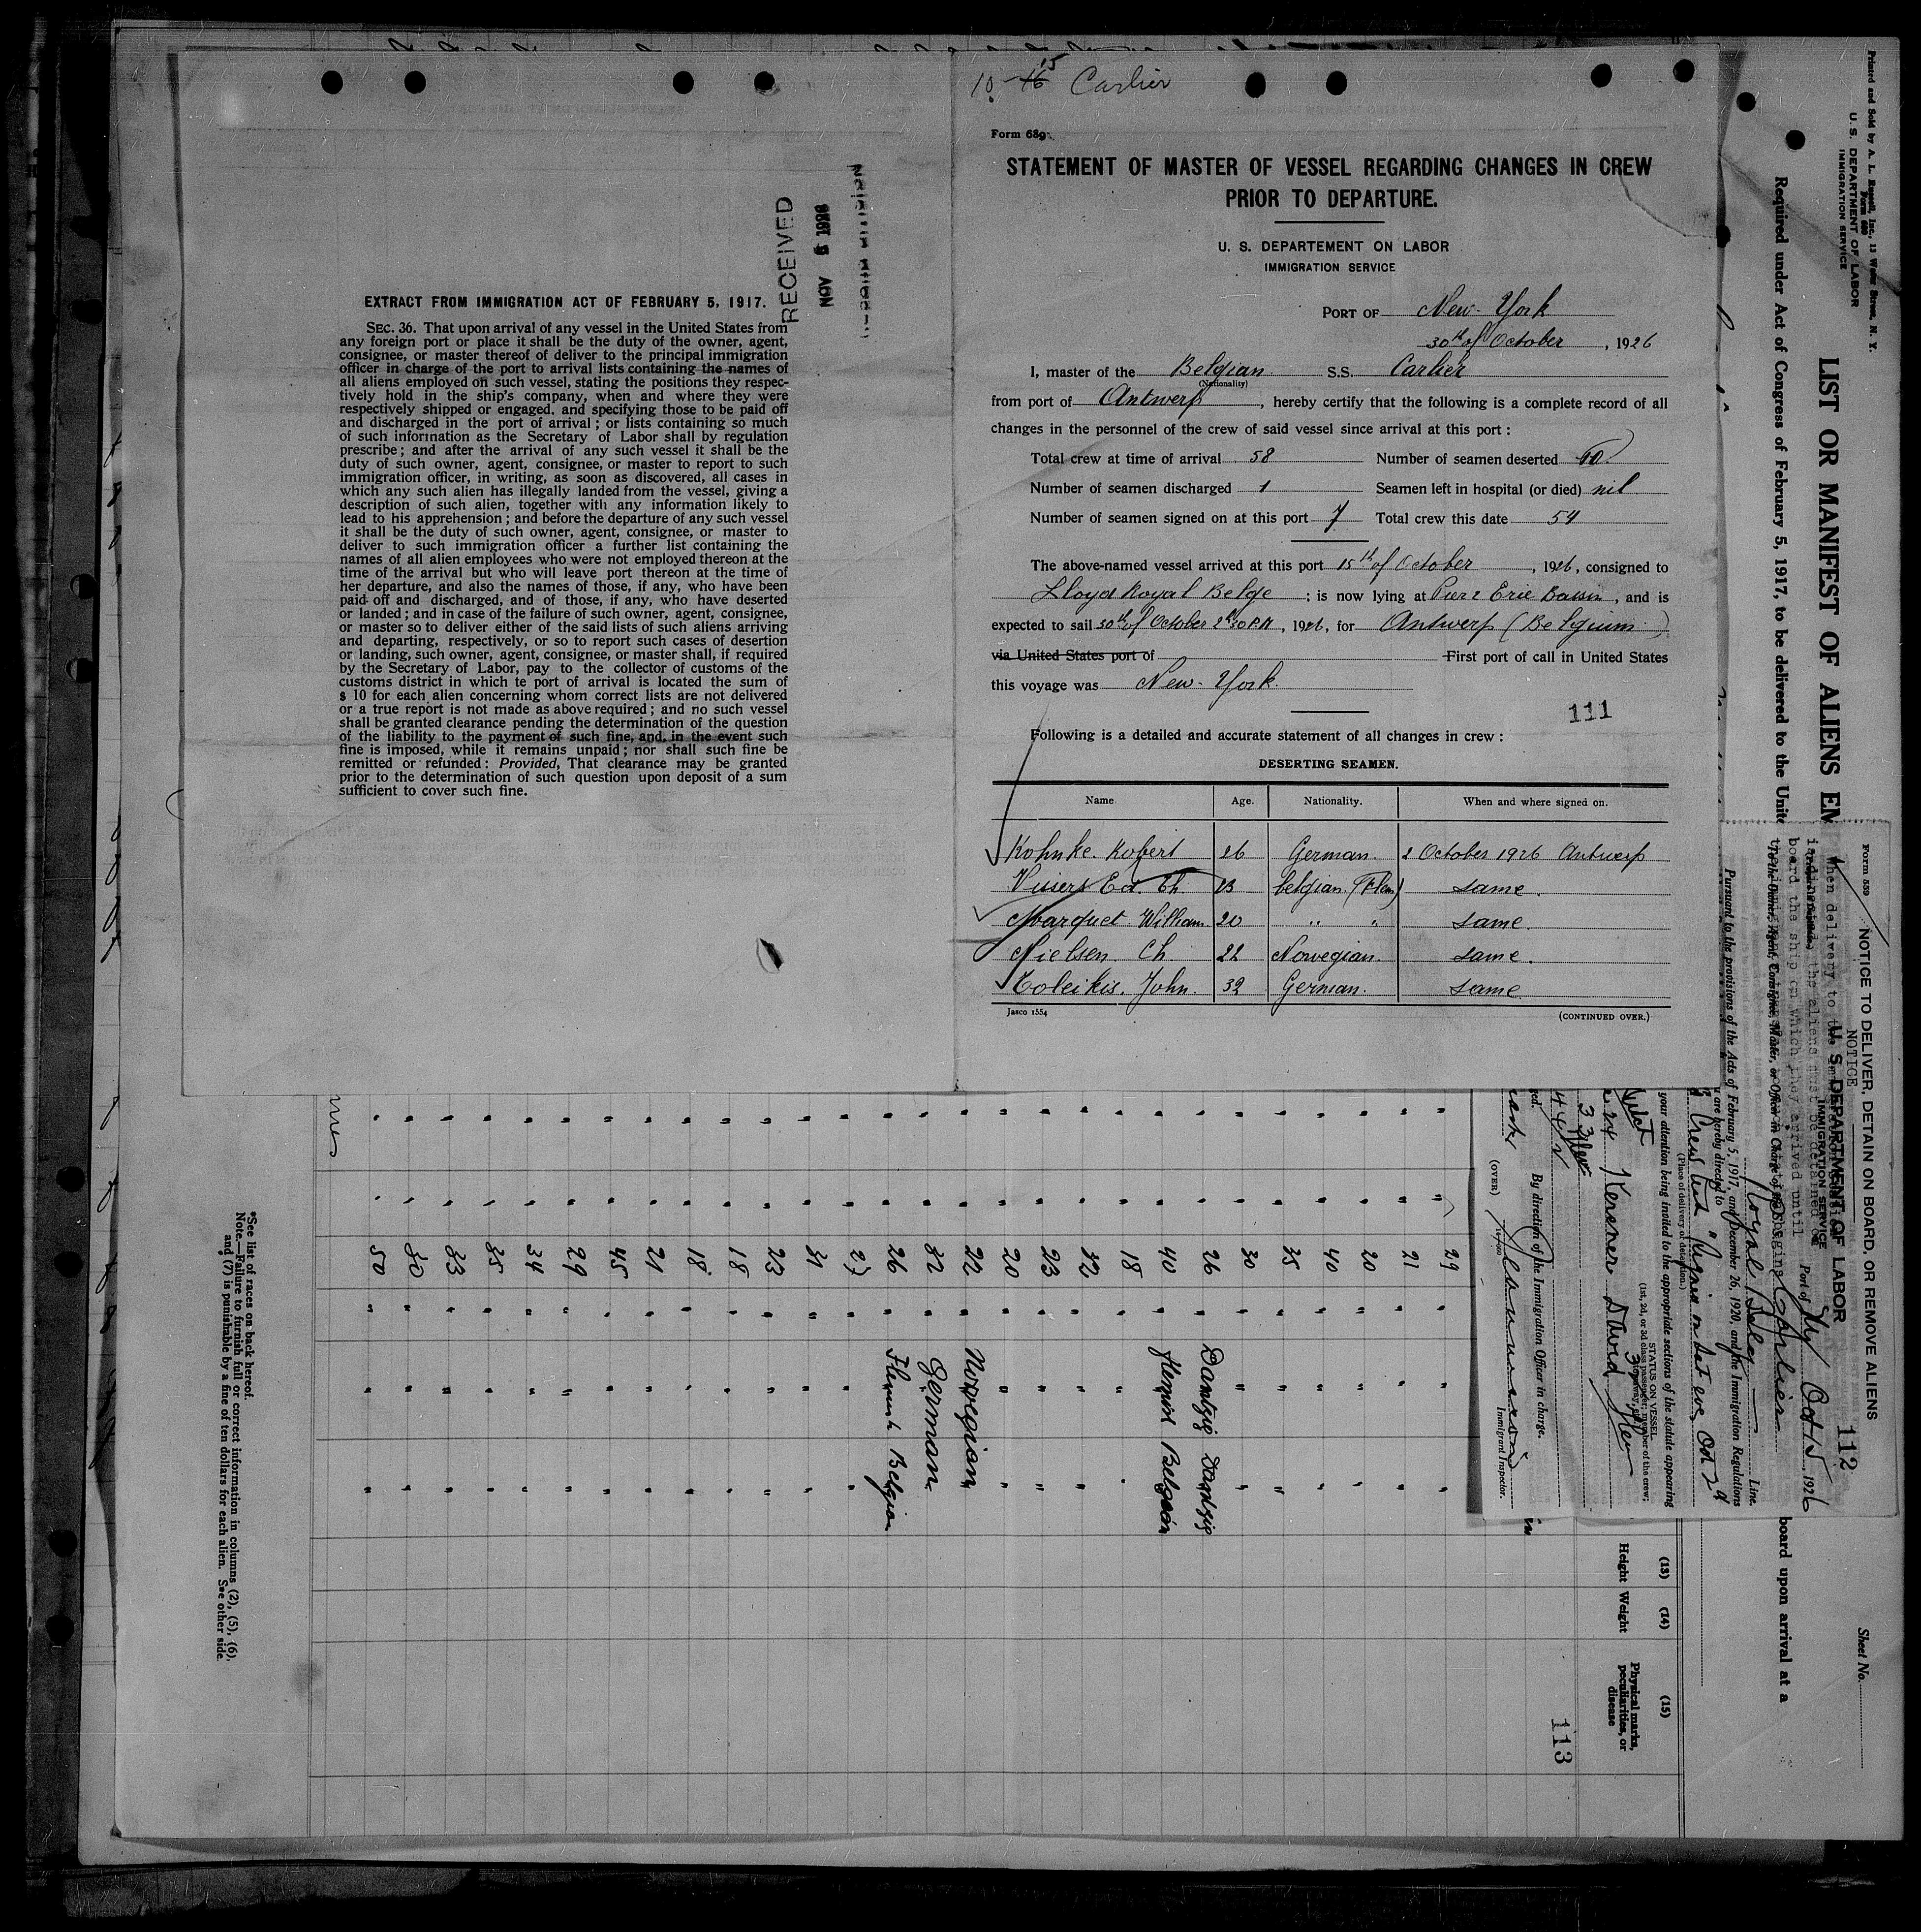 10-16 15 Carlier
Form 689
STATEMENT OF MASTER OF VESSEL REGARDING CHANGES IN CREW
PRIOR TO DEPARTURE.
U. S. DEPARTEMENT ON LABOR
IMMIGRATION SERVICE
PORT OF New-York
30th of October, 1926
I, master of the Belgian S.S. Carlier
(Nationality)
from port of Antwerp, hereby certify that the following is a complete record of all
changes in the personnel of the crew of said vessel since arrival at this port :
Total crew at time of arrival 58 Number of seamen deserted 10
Number of seamen discharged 1 Seamen left in hospital (or died) nil
Number of seamen signed on at this port 7 Total crew this date 54
The above-named vessel arrived at this port 15th of October, 1926, consigned to
Lloyd Royal Belge : is now lying at Pier 2 Erie Bassin, and is
expected to sail 30th of October 2h30 P.M, 1926, for Antwerp (Belgium)
via United States port of First port of call in United States
this voyage was New-York.
111
Following is a detailed and accurate statement of all changes in crew :
DESERTING SEAMEN.
Name Age. Nationality. When and where signed on.
Kohnke. Robert 26 German. 2 October 1926 Antwerp
Vissers Ed. Ch. 23 belgian (Flem) same.
Marquet William 20 " " same.
Nielsen. Ch 22 Norwegian same.
Toleikis. John. 32 German. same
Jasco 1554 (CONTINUED OVER.)
RECEIVED
NOV 5 1926
EXTRACT FROM IMMIGRATION ACT OF FEBRUARY 5, 1917.
SEC. 36. That upon arrival of any vessel in the United States from
any foreign port or place it shall be the duty of the owner, agent,
consignee, or master thereof of deliver to the principal immigration
officer in charge of the port to arrival lists containing the names of
all aliens employed on such vessel, stating the positions they respec-
tively hold in the ship's company, when and where they were
respectively shipped or engaged. and specifying those to be paid off
and discharged in the port of arrival ; or lists containing so much
of such information as the Secretary of Labor shall by regulation
prescribe ; and after the arrival of any such vessel it shall be the
duty of such owner, agent, consignee, or master to report to such
immigration officer, in writing, as soon as discovered, all cases in
which any such alien has illegally landed from the vessel, giving a
description of such alien, together with any information likely to
lead to his apprehension ; and before the departure of any such vessel
it shall be the duty of such owner, agent, consignee, or master to
deliver to such immigration officer a further list containing the
names of all alien employees who were not employed thereon at the
time of the arrival but who will leave port thereon at the time of
her departure, and also the names of those, if any, who have been
paid off and discharged, and of those, if any, who have deserted
or landed ; and in case of the failure of such owner, agent, consignee,
or master so to deliver either of the said lists of such aliens arriving
and departing, respectively, or so to report such cases of desertion
or landing, such owner, agent, consignee, or master shall, if required
by the Secretary of Labor, pay to the collector of customs of the
customs district in which te port of arrival is located the sum of
$ 10 for each alien concerning whom correct lists are not delivered
or a true report is not made as above required ; and no such vessel
shall be granted clearance pending the determination of the question
of the liability to the payment of such fine, and, in the event such
fine is imposed, while it remains unpaid ; nor shall such fine be
remitted or refunded : Provided, That clearance may be granted
prior to the determination of such question upon deposit of a sum
sufficient to cover such fine.
Printed and Sold by A. L. Russell, Inc., 13 Water Street, N. Y.
Form 680
U. S. DEPARTMENT OF LABOR
IMMIGRATION SERVICE
LIST OR MANIFEST OF ALIENS EM
Required under Act of Congress of February 5, 1917, to be delivered to the Unite
board upon arrival at a
Sheet No.
Form 539
NOTICE TO DELIVER, DETAIN ON BOARD, OR REMOVE ALIENS
112
NOTICE
U. S. DEPARTMENT OF LABOR
IMMIGRATION SERVICE
Port of NY Oct 15, 1926
When delivery to
board the ship on which they arrived until
Carlier
Royal Belge Line.
Pursuant to the provisions of the Acts of February 5, 1917, and December 26, 1920, and the Immigration Regulations
are hereby directed to
(Place of delivery or detention.)
your attention being invited to the appropriate sections of the statute appearing
STATUS ON VESSEL
Kerener David
By direction of the Immigration Officer in charge.
Immigrant Inspector.
(OVER)
(13) Height
(14) Weight
(15) Physical marks, peculiarities, or disease
113
29
21
20
40
35
30
26 Dantzig Dantzig
40 flemish Belgian
18
32
23
20
22 Norwegian
32 German
26 Flemish Belgian
27
31
23
18
18
21
45
29
34
35
33
30
50
*See list of races on back hereof.
Note.—Failure to furnish full or correct information in columns (2), (5), (6),
and (7) is punishable by a fine of ten dollars for each alien. See other side.